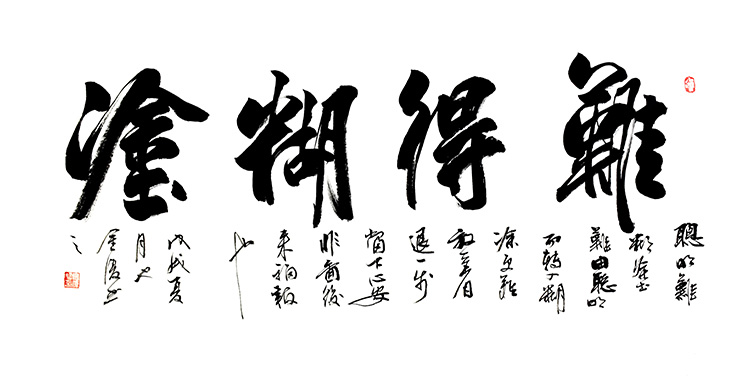 難得糊塗
聰明難
糊塗
難由聰明
而轉入糊
塗更難
放
退一步
當下心安
非圖後
來福報
也
戊戌夏
月